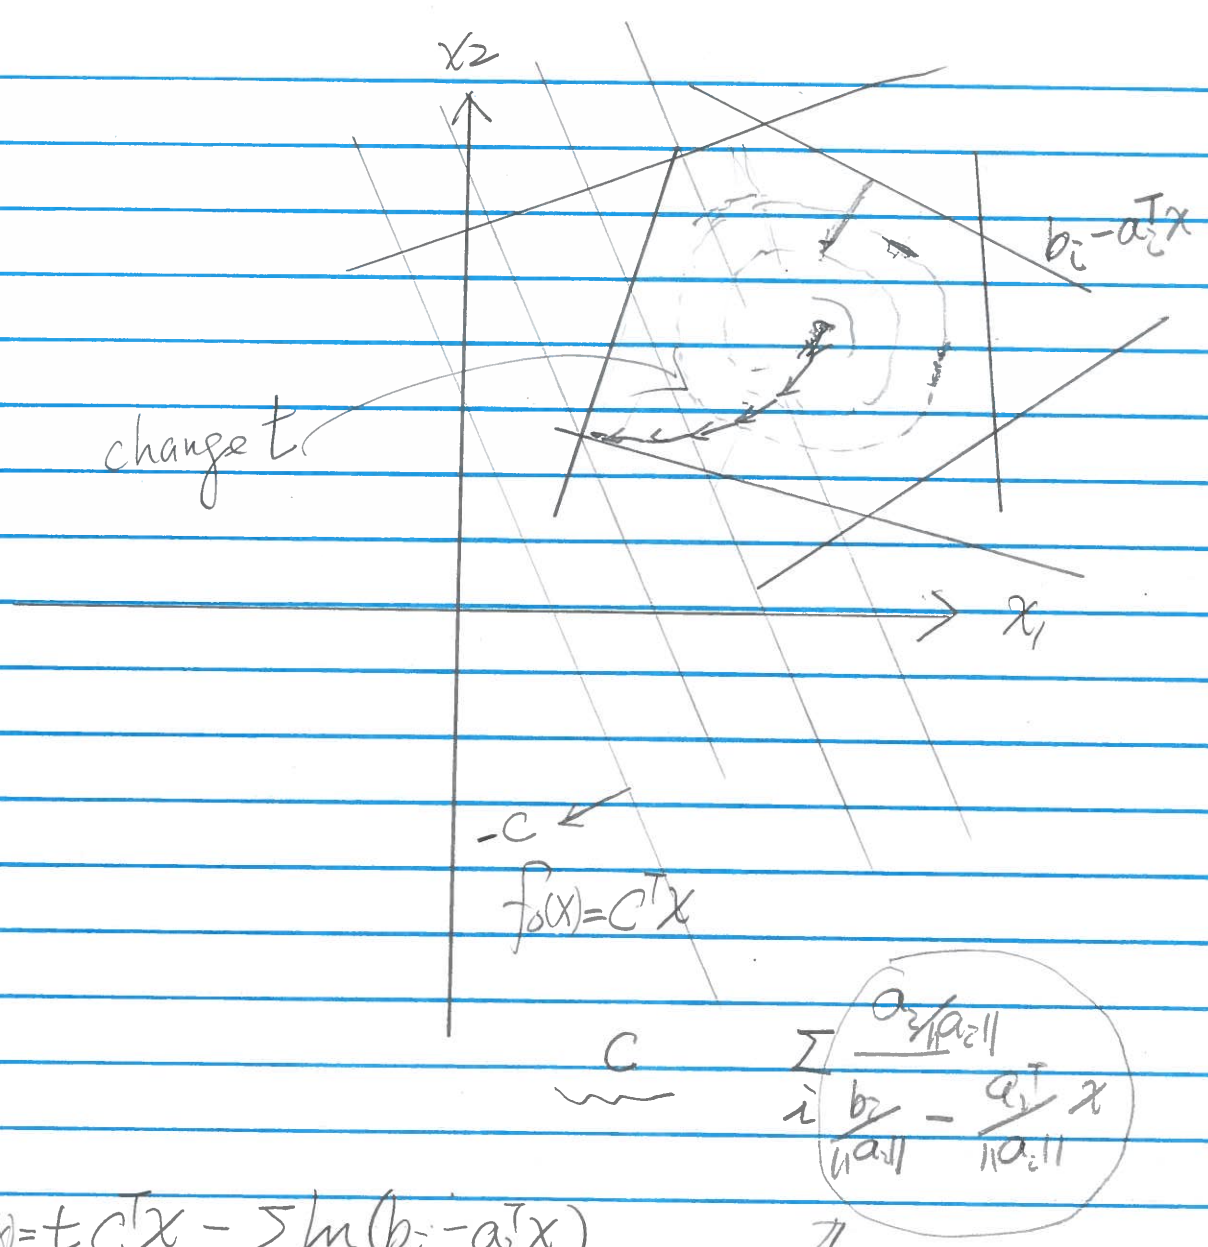 x2
b_i - a_i^T x
change t
x_1
-c
f_0(x) = c^T x
c
Σ_i (a_i/||a_i||) / (b_i/||a_i|| - a_i^T/||a_i|| x)
) = t c^T x - Σ ln(b_i - a_i^T x)